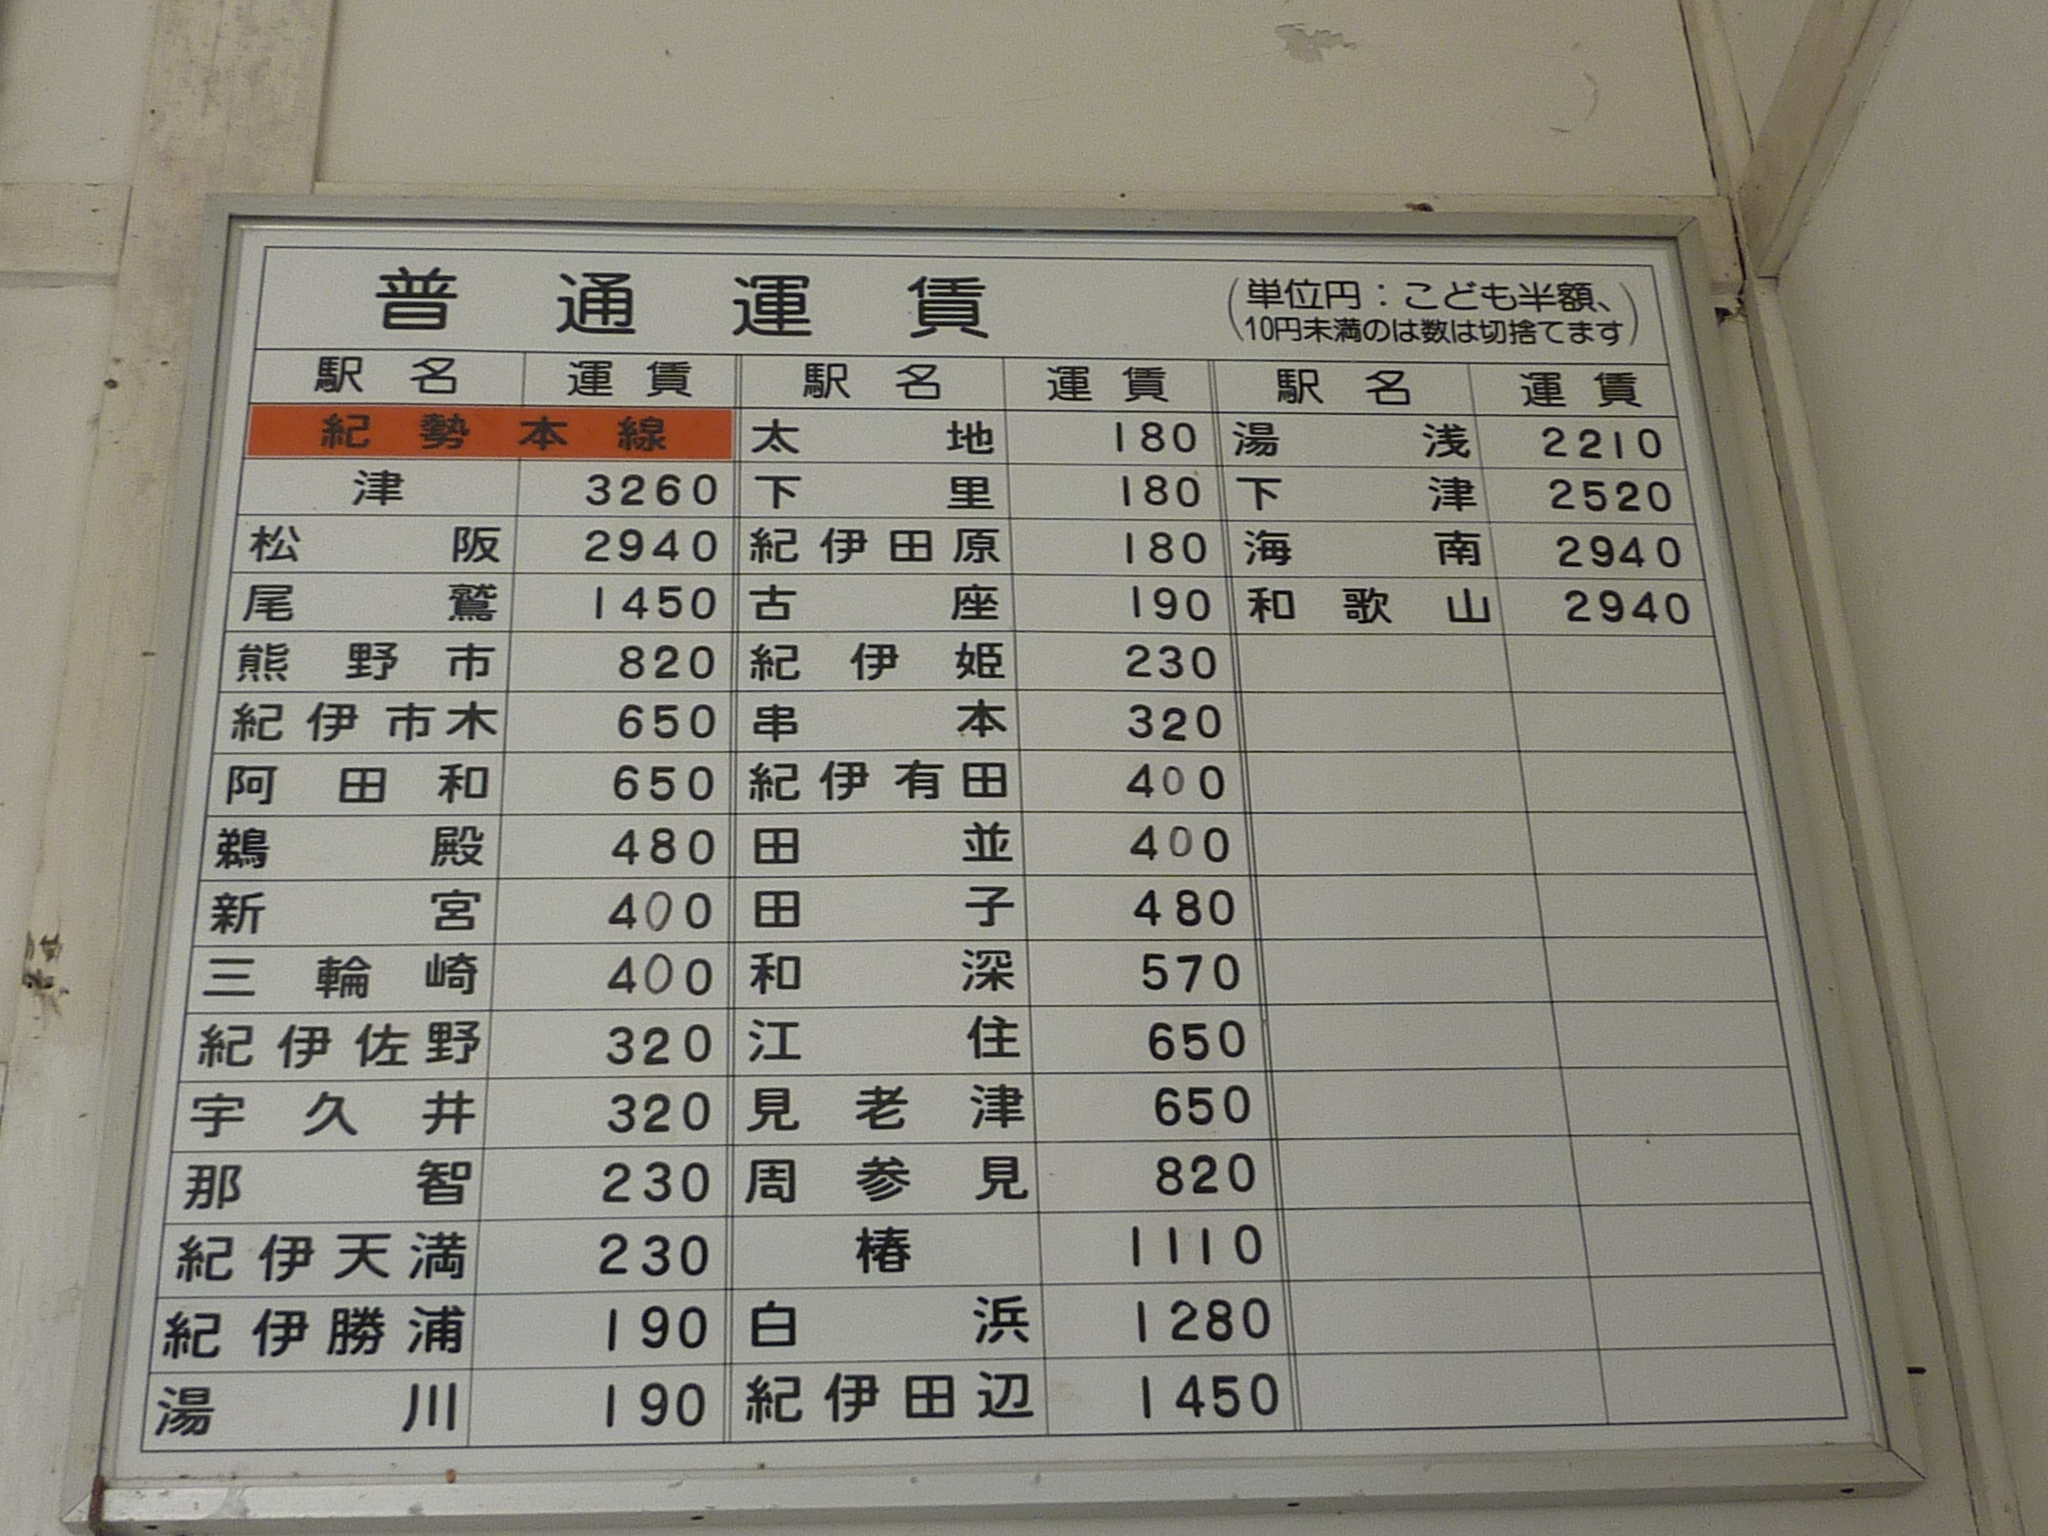 普通運賃
(単位円：こども半額、
10円未満のは数は切捨てます)
駅名 運賃 駅名 運賃 駅名 運賃
紀勢本線 太地 180 湯浅 2210
津 3260 下里 180 下津 2520
松阪 2940 紀伊田原 180 海南 2940
尾鷲 1450 古座 190 和歌山 2940
熊野市 820 紀伊姫 230
紀伊市木 650 串本 320
阿田和 650 紀伊有田 400
鵜殿 480 田並 400
新宮 400 田子 480
三輪崎 400 和深 570
紀伊佐野 320 江住 650
宇久井 320 見老津 650
那智 230 周参見 820
紀伊天満 230 椿 1110
紀伊勝浦 190 白浜 1280
湯川 190 紀伊田辺 1450